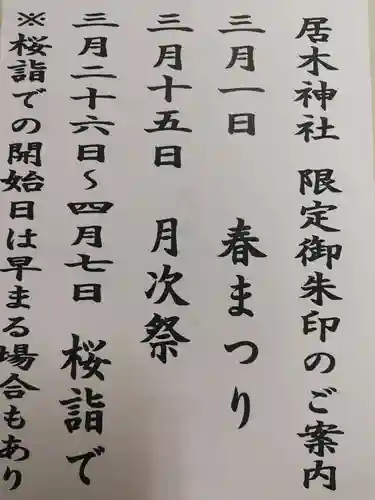 居木神社 限定御朱印のご案内
三月一日 春まつり
三月十五日 月次祭
三月二十六日~四月七日 桜詣で
※桜詣での開始日は早まる場合もあり